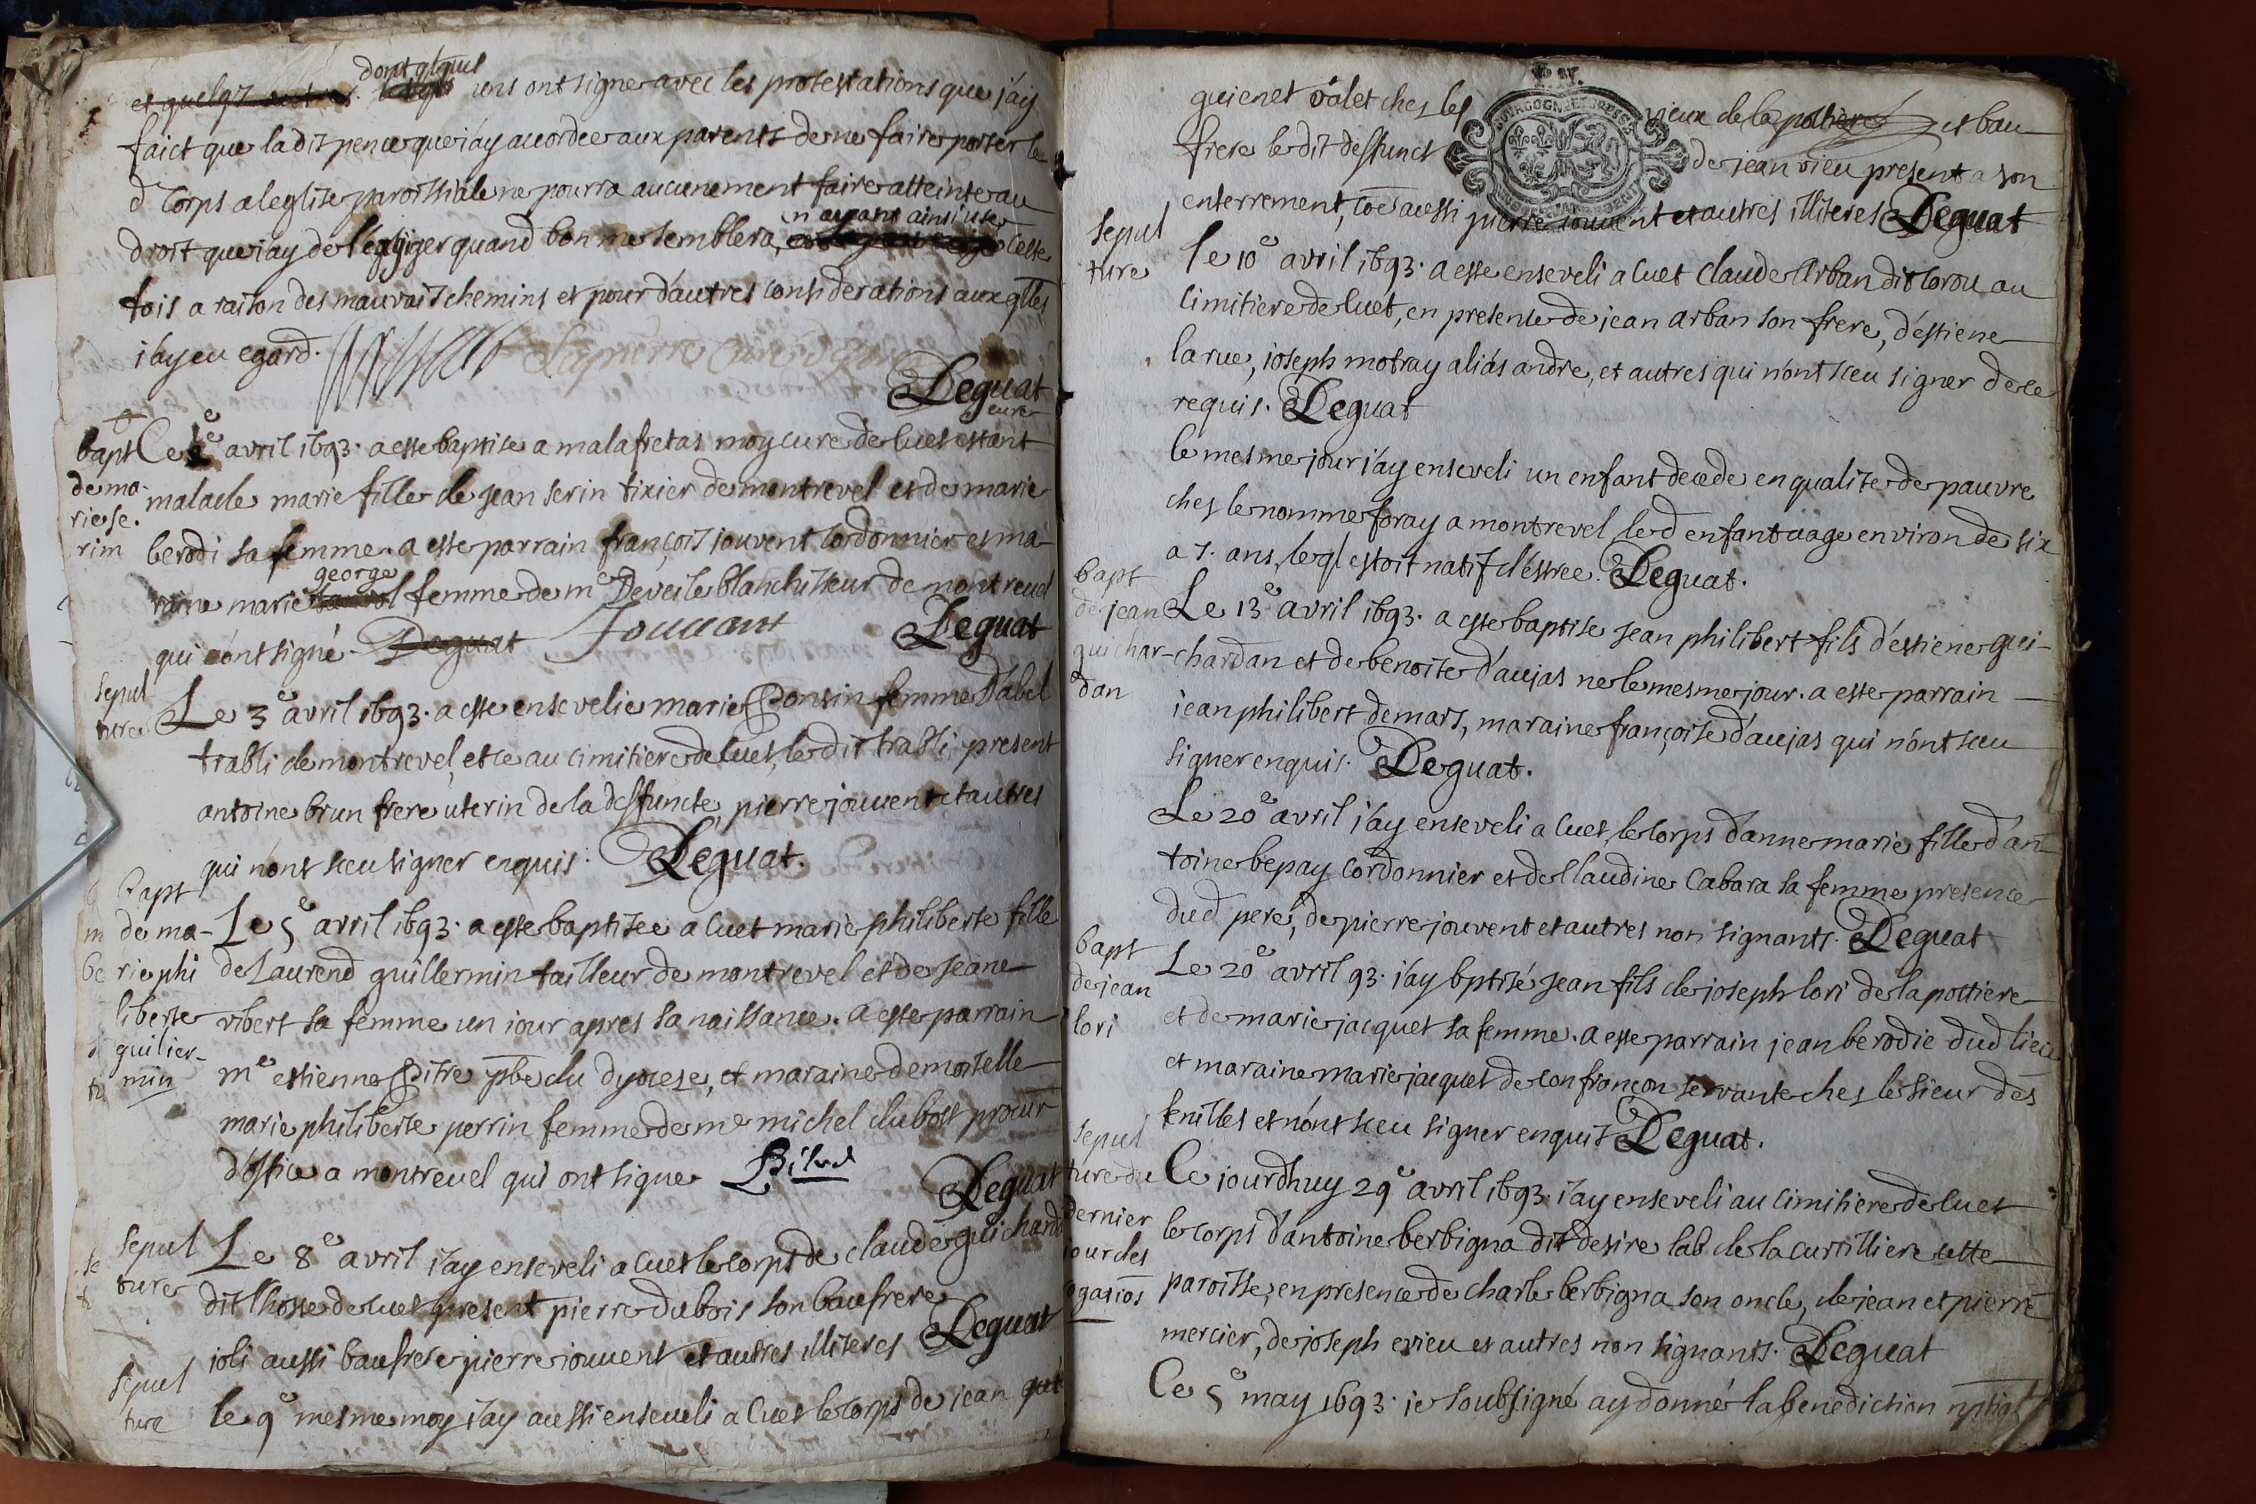 dont qlques
uns ont signe avec les protestations que j'ay
faict que la dispence que j'ay accordee aux parents de ne faire porter le
d corps a leglise paroissiale ne pourra aucunement faire atteinte au
droit que jay de l'exiger quand bon me semblera, n'ayant ainsi use cette
fois a raison des mauvais chemins et pour d'autres considerations auxqlles
j'ay eu egard.
Deguat
cure
bapt
de ma-
rie se-
rin
Ce 2e avril 1693. a este baptise a malafretas moy cure de cuet estant
malade marie fille de jean serin tixier de montrevel et de marie
berodi sa femme. a este parrain françois jouvent cordonnier et ma-
raine marie george femme de me Deveile blanchisseur de montrevel
qui ont signé. Deguat Jouuant Deguat
sepul
ture
Le 3e avril 1693. a este ensevelie marie Ponsin femme d'abel
trabli de montrevel, et ce au cimitiere de cuet, le dit trabli present
antoine brun frere uterin de la deffuncte, pierre jouvent et autres
qui n'ont sceu signer enquis. Deguat.
bapt
de ma-
rie phi
liberte
guilier-
min
Le 5e avril 1693. a este baptisee a cuet marie philiberte fille
de Laurend guillermin tailleur de montrevel et de jeane
vibert sa femme un jour apres sa naissance. a este parrain
me estienne Pitre pbre du dyocese, et maraine demoiselle
marie philiberte perrin femme de me michel dubost procur
d'office a montrevel qui ont signe Deguat
sepul
ture
Le 8e avril j'ay enseveli a cuet le corps de claude guichard
dit l'hoste de cuet present pierre dubois son baufrere
joli aussi baufrere pierre jouvent et autres illiteres Deguat
sepul
ture
le 9e mesme moy j'ay aussi enseveli a cuet le corps de jean gui
guienet valet ches les vieux de la poltiere et bau
frere le dit deffunct de jean vieu present a son
enterrement, coe aussi pierre jouvent et autres illiteres Deguat
sepul
ture
le 10e avril 1693. a este enseveli a cuet claude arban dit corou au
cimitiere de cuet, en presence de jean arban son frere, d'estiene
larue, joseph mofray aliás andre, et autres qui n'ont sceu signer de ce
requis. Deguat
le mesme jour j'ay enseveli un enfant decede en qualite de pauvre
ches le nomme foray a montrevel le d enfant aage environ de six
a 7. ans, leql estoit natif d'estree. Deguat.
bapt
de jean
guichar-
dan
Le 13e avril 1693. a este baptise jean philibert fils d'estiene gui-
chardan et de benoite d'aujas ne le mesme jour. a este parrain
jean philibert demars, maraine françoise d'aujas qui n'ont sceu
signer enquis. Deguat.
Le 20e avril j'ay enseveli a cuet, le corps d'anne marie fille d'an-
toine bepay cordonnier et de claudine cabara sa femme presence
du d pere, de pierre jouvent et autres non signants. Deguat
bapt
de jean
lori
Le 20e avril 93. j'ay bptisé jean fils de joseph lori de la poltiere
et de marie jacquet sa femme. a este parrain jean berodie dud lieu
et maraine marie jacquet de confrançon servante ches le sieur des
fenilles et n'ont sceu signer enquis Deguat.
sepul
ture du
dernier
jour des
rogatios
Ce jourdhuy 29e avril 1693. j'ay enseveli au cimitiere de cuet
le corps d'antoine berbigna dit desire lab de la curtilliere cette
paroisse, en presence de charle berbigna son oncle, de jean et pierre
mercier, de joseph evieu et autres non signants. Deguat
Ce 5e may 1693. je soubsigné ay donné la benediction nptial